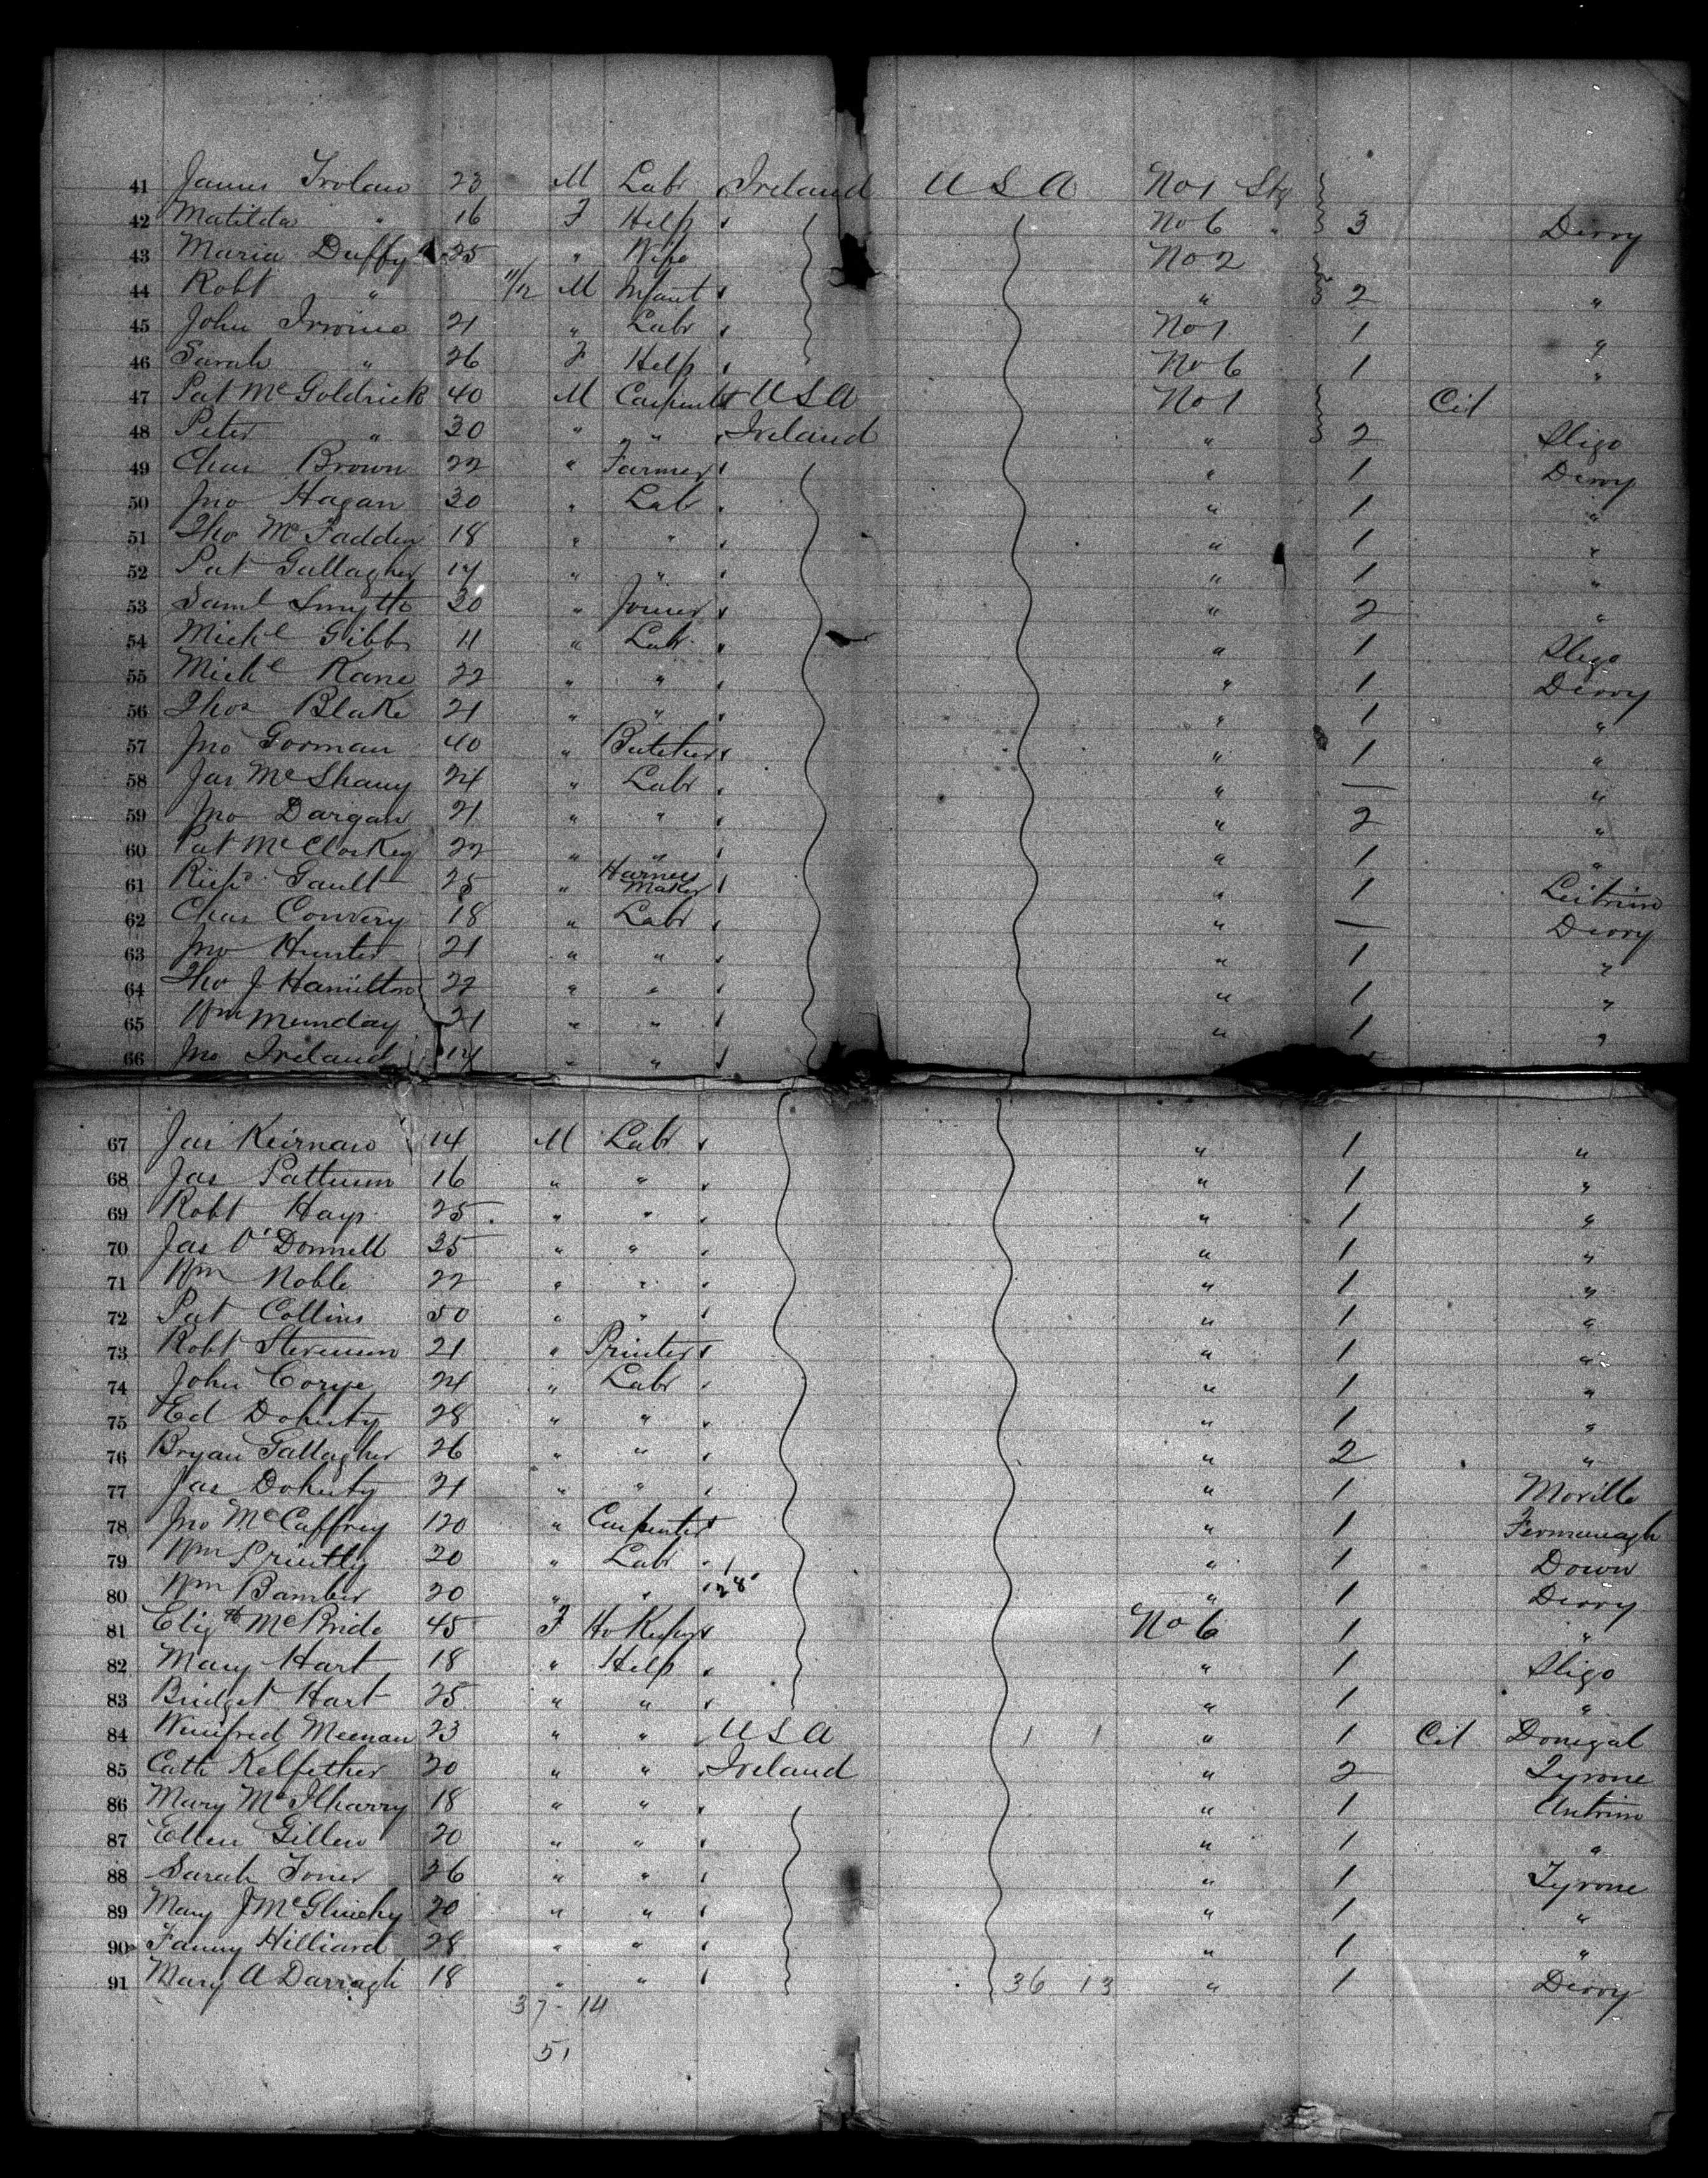 41 James Irolan 23 M Labr Ireland U S A No 1 Stg
42 Matilda " 16 F Help No 6 " 3 Derry
43 Maria Duffy 25 " Wife No 2
44 Robt " 11/12 M Infant " 2 "
45 John Irvine 21 " Labr No 1 1 "
46 Sarah " 26 F Help No 6 1 "
47 Pat McGoldrick 40 M Carpent U S A No 1 Cit
48 Peter " 30 " " Ireland " 2 Sligo
49 Chas Brown 22 " Farmer " 1 Derry
50 Jno Hagan 30 " Labr " 1 "
51 Tho McFadden 18 " " " 1 "
52 Pat Gallagher 14 " " " 1 "
53 Saml Smyth 30 " Joiner " 2 "
54 Michl Gibb 11 " Labr " 1 Sligo
55 Michl Kane 22 " " " 1 Derry
56 Thos Blake 21 " " " 1 "
57 Jno Gorman 40 " Butcher " 1 "
58 Jas McShany 24 " Labr " — "
59 Jno Dargan 21 " " " 2 "
60 Pat McCloskey 22 " " " 1 "
61 Richd Gault 25 " Harness Maker " 1 Leitrim
62 Chas Convery 18 " Labr " — Derry
63 Jno Hunter 21 " " " 1 "
64 Tho J Hamilton 22 " " " 1 "
65 Wm Munday 21 " " " 1 "
66 Jno Ireland 14 " "
67 Jas Keirnan 14 M Labr " 1 "
68 Jas Patterson 16 " " " 1 "
69 Robt Hays 25 " " " 1 "
70 Jas O'Donnell 35 " " " 1 "
71 Wm Noble 22 " " " 1 "
72 Pat Collins 50 " " " 1 "
73 Robt Stevenson 21 " Printer " 1 "
74 John Corye 24 " Labr " 1 "
75 Ed Doherty 28 " " " 1 "
76 Bryan Gallagher 26 " " " 2 "
77 Jas Doherty 21 " " " 1 Moville
78 Jno McCaffrey 120 " Carpenter " 1 Fermanagh
79 Wm Priestly 20 " Labr " 1 Down
80 Wm Bamber 20 " " " 1 Derry
81 Elizth McBride 45 F Ho Keeper No 6 1 "
82 Mary Hart 18 " Help " 1 Sligo
83 Bridget Hart 25 " " " 1 "
84 Winifred Meenan 23 " " U S A 1 1 " 1 Cit Donegal
85 Cath Kelfether 20 " " Ireland " 2 Tyrone
86 Mary McIlharry 18 " " " 1 Antrim
87 Ellen Gillen 20 " " " 1 "
88 Sarah Toner 26 " " " 1 Tyrone
89 Mary J McGlinchy 20 " " " 1 "
90 Fanny Hilliard 28 " " " 1 "
91 Mary A Darragh 18 " " 36 13 " 1 Derry
37 - 14
51